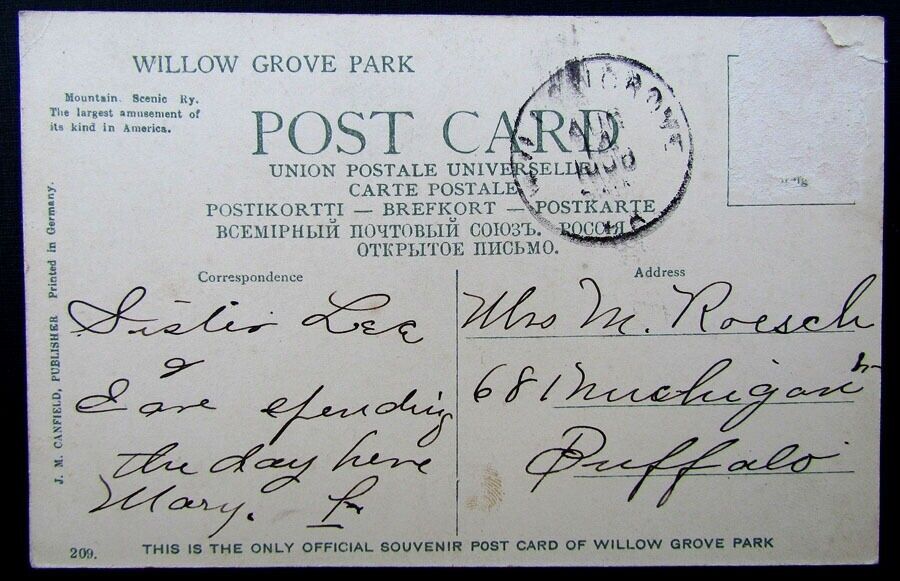 WILLOW GROVE PARK
Mountain Scenic Ry.
The largest amusement of
its kind in America.
POST CARD
UNION POSTALE UNIVERSELLE
CARTE POSTALE
POSTIKORTTI — BREFKORT — POSTKARTE
ВСЕМІРНЫЙ ПОЧТОВЫЙ СОЮЗЪ. РОССІЯ
ОТКРЫТОЕ ПИСЬМО.
WILLOW GROVE
AUG
1908
PA
J. M. CANFIELD, PUBLISHER Printed in Germany.
Correspondence
Sister Lee
&
I are spending
the day here
Mary.
Address
Mrs M. Roesch
681 Michigan
Buffalo
209.
THIS IS THE ONLY OFFICIAL SOUVENIR POST CARD OF WILLOW GROVE PARK